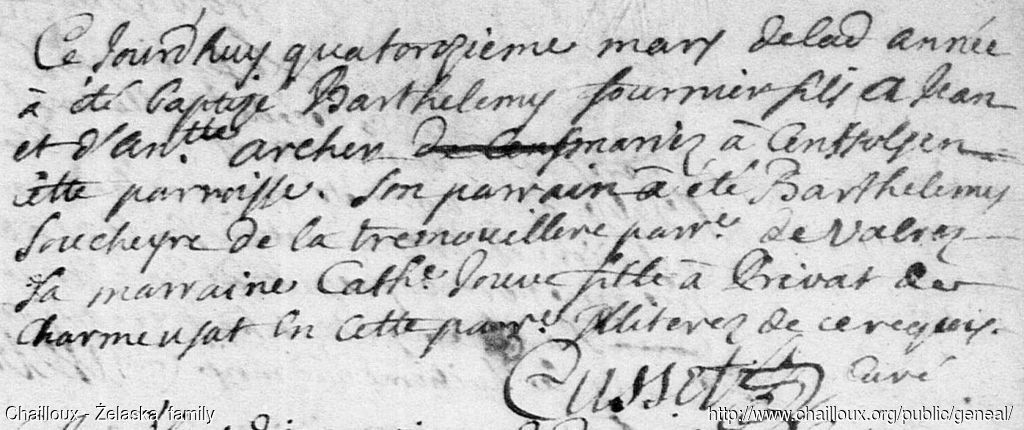 Ce Jourdhuy quatorzieme mars delad année
à été baptizé Barthelemy fournier fils a Jean
et d'an.tte archer mariez à
cette parroisse. Son parrain à été Barthelemy
Soucheyre de la tremouillere parr.e de valrez
Sa marraine Cath.e Jouve fille à Privat de
Charmeusat en cette parr.e Illiterez de ce requis.
Cusset curé
Chailloux - Żelaska family
http://www.chailloux.org/public/geneal/